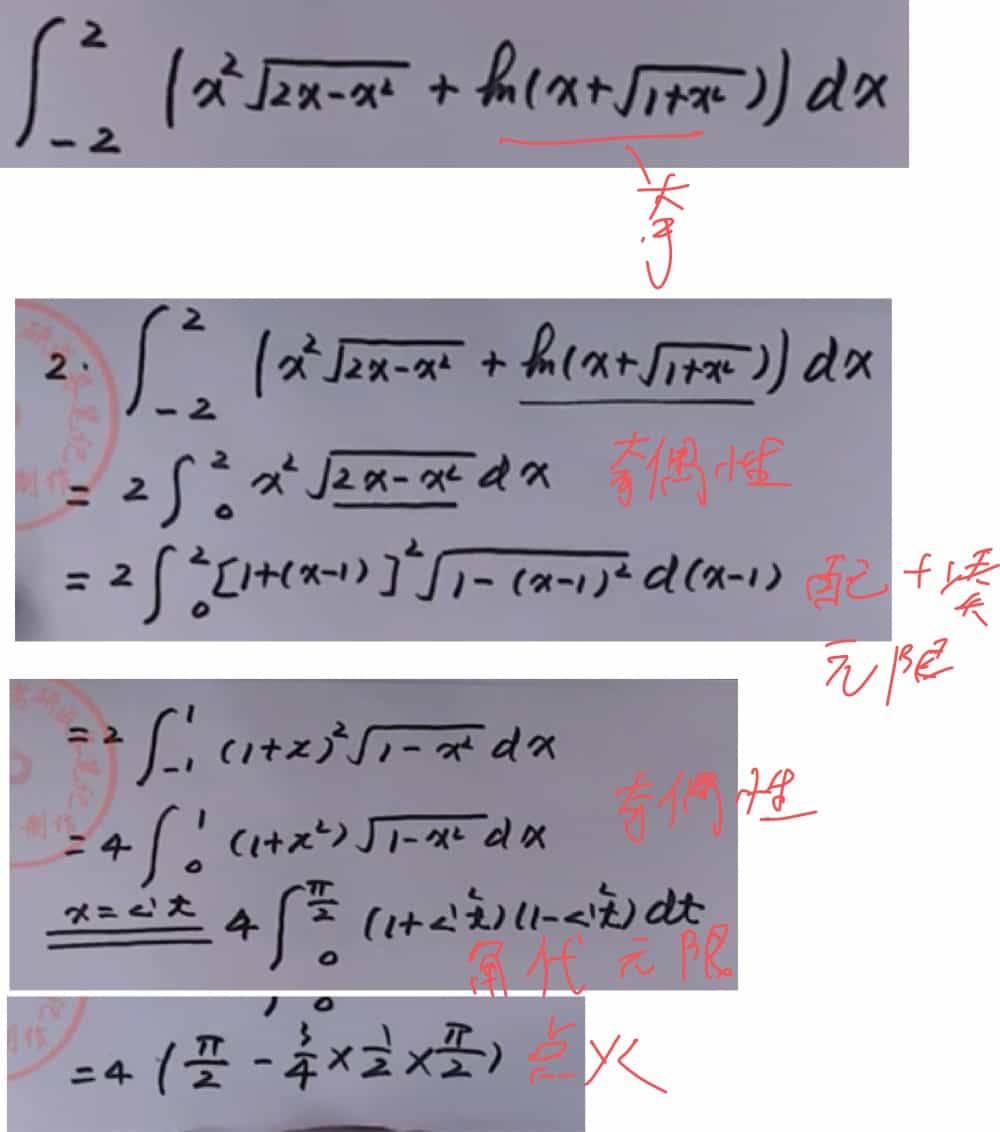 ∫_{-2}^{2} (x²√(2x-x²) + ln(x+√(1+x²))) dx
奇
2. ∫_{-2}^{2} (x²√(2x-x²) + ln(x+√(1+x²))) dx
= 2∫_{0}^{2} x²√(2x-x²) dx 奇偶性
= 2∫_{0}^{2} [1+(x-1)]²√(1-(x-1)²) d(x-1) 配+换
元限
= 2∫_{-1}^{1} (1+x)²√(1-x²) dx
奇偶性
= 4∫_{0}^{1} (1+x²)√(1-x²) dx
x=sin t 4∫_{0}^{π/2} (1+sin²t)(1-sin²t) dt
角代元限
= 4(π/2 - 3/4×1/2×π/2) 点火